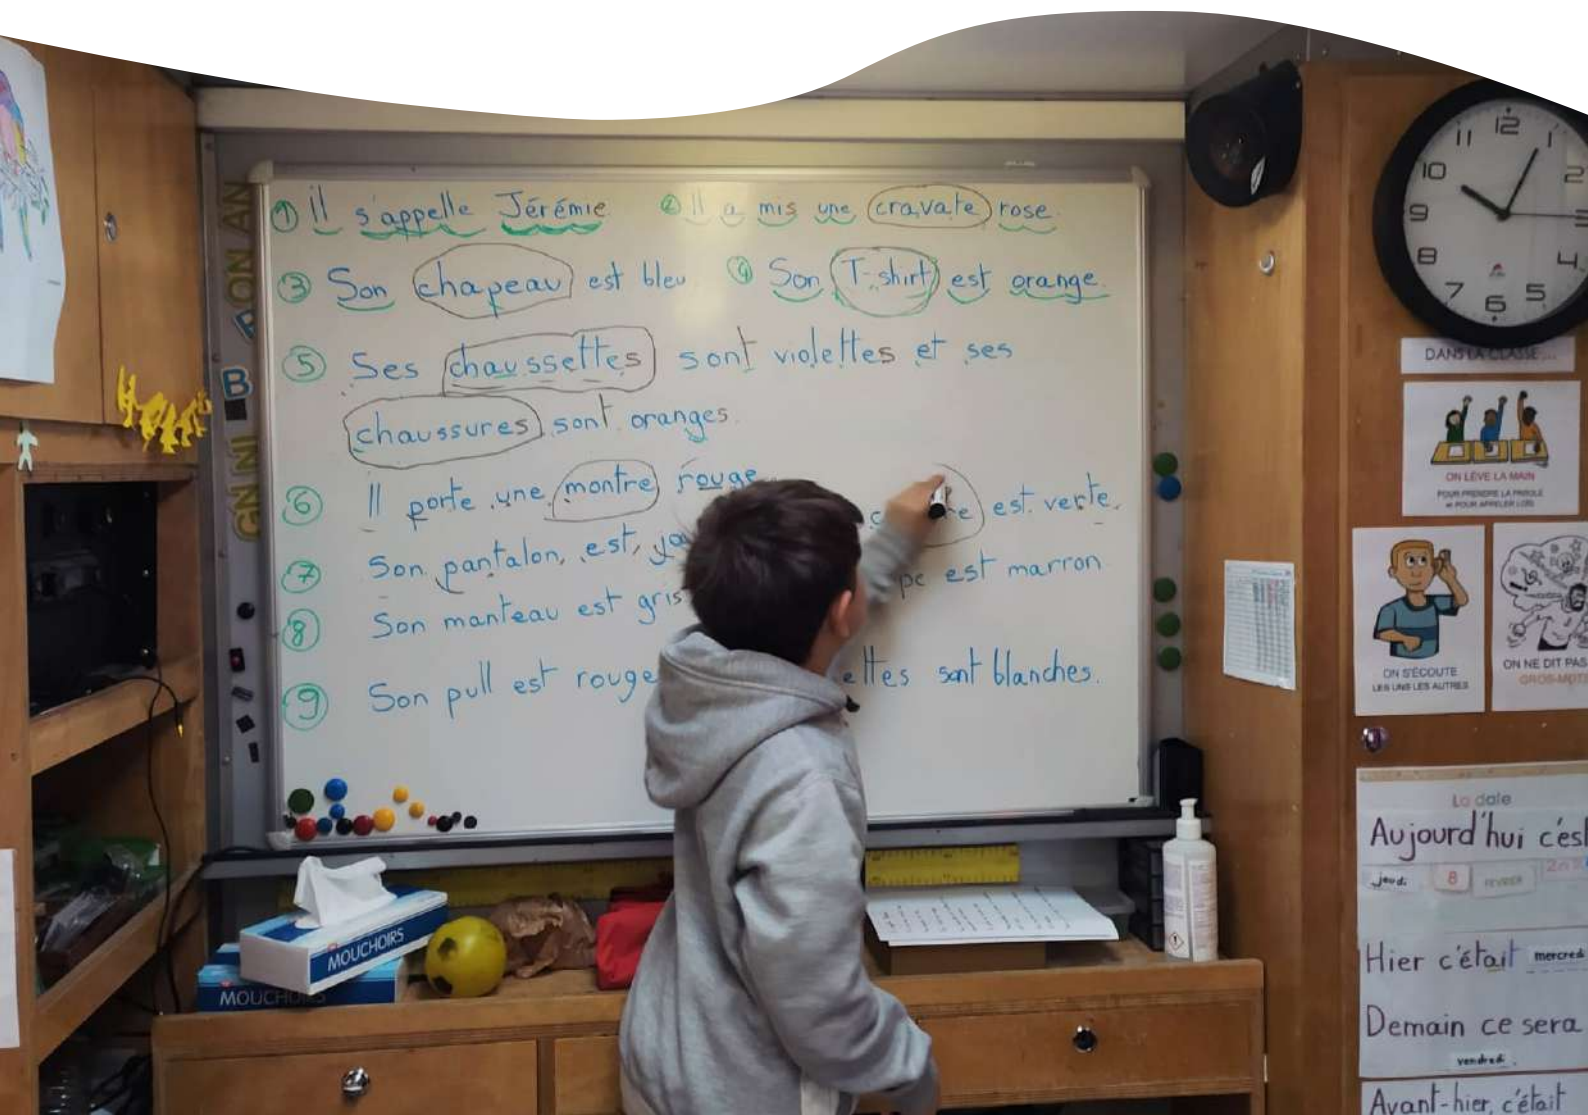 ① il s'appelle Jérémie ② Il a mis une cravate rose.
③ Son chapeau est bleu ④ Son T-shirt est orange.
⑤ Ses chaussettes sont violettes et ses
chaussures sont oranges.
⑥ Il porte une montre rouge
est verte.
⑦ Son pantalon est
est marron
⑧ Son manteau est gris
⑨ Son pull est rouge
sont blanches.
MOUCHOIRS
MOUCHOIRS
11 12 1
10 2
9 3
8 4
7 6 5
DANS LA CLASSE ...
ON LÈVE LA MAIN
POUR PRENDRE LA PAROLE
et POUR APPELER LOIS
ON S'ÉCOUTE
LES UNS LES AUTRES
ON NE DIT PAS
GROS-MOTS
La date
Aujourd'hui c'est
jeudi 8 FEVRIER
Hier c'était mercredi
Demain ce sera
vendredi.
Avant-hier c'était